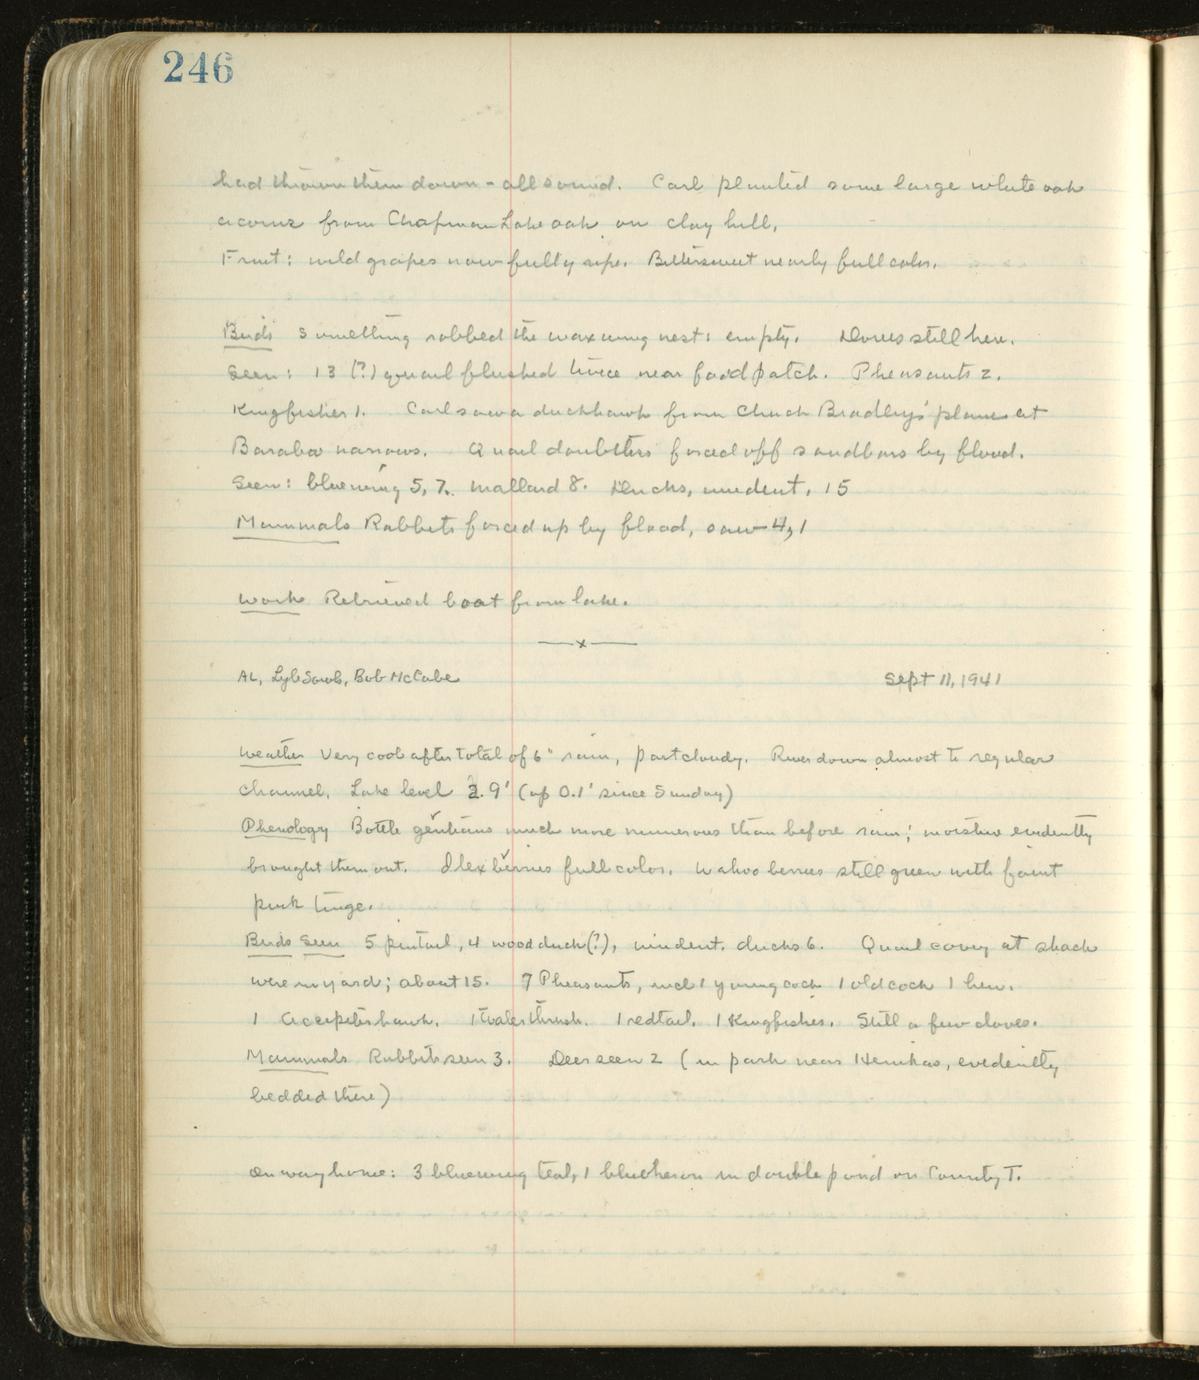 246
had thrown them down - all sound. Carl planted some large white oak
acorns from Chapman Lake oak on clay hill.
Fruit: wild grapes now fully ripe. Bittersweet nearly full color.
Birds Something robbed the waxwing nest: empty. Doves still here.
Seen: 13 (?) quail flushed twice near food patch. Pheasants 2.
Kingfisher 1. Carl saw a duckhawk from Chuck Bradley's plane at
Baraboo narrows. Quail doubtless forced off sandbars by flood.
Seen: bluewing 5, 7. mallard 8. Ducks, unident, 15
Mammals Rabbits forced up by flood, saw 4, 1
Work Retrieved boat from lake.
—x—
AL, Bob McCabe Sept 11, 1941
Weather Very cool after total of 6" rain, part cloudy. River down almost to regular
channel. Lake level 2.9' (up 0.1' since Sunday)
Phenology Bottle gentians much more numerous than before rain; moisture evidently
brought them out. Ilex berries full color. Wahoo berries still green with faint
pink tinge.
Birds Seen 5 pintail, 4 wood duck(?), unident. ducks 6. Quail covey at shack
were in yard; about 15. 7 Pheasants, incl 1 young cock 1 old cock 1 hen.
1 Accipiter hawk. 1 Waterthrush. 1 redtail. 1 Kingfisher. Still a few doves.
Mammals Rabbits seen 3. Deer seen 2 (in park near evidently
bedded there)
On way home: 3 bluewing teal, 1 blue heron in double pond on County T.